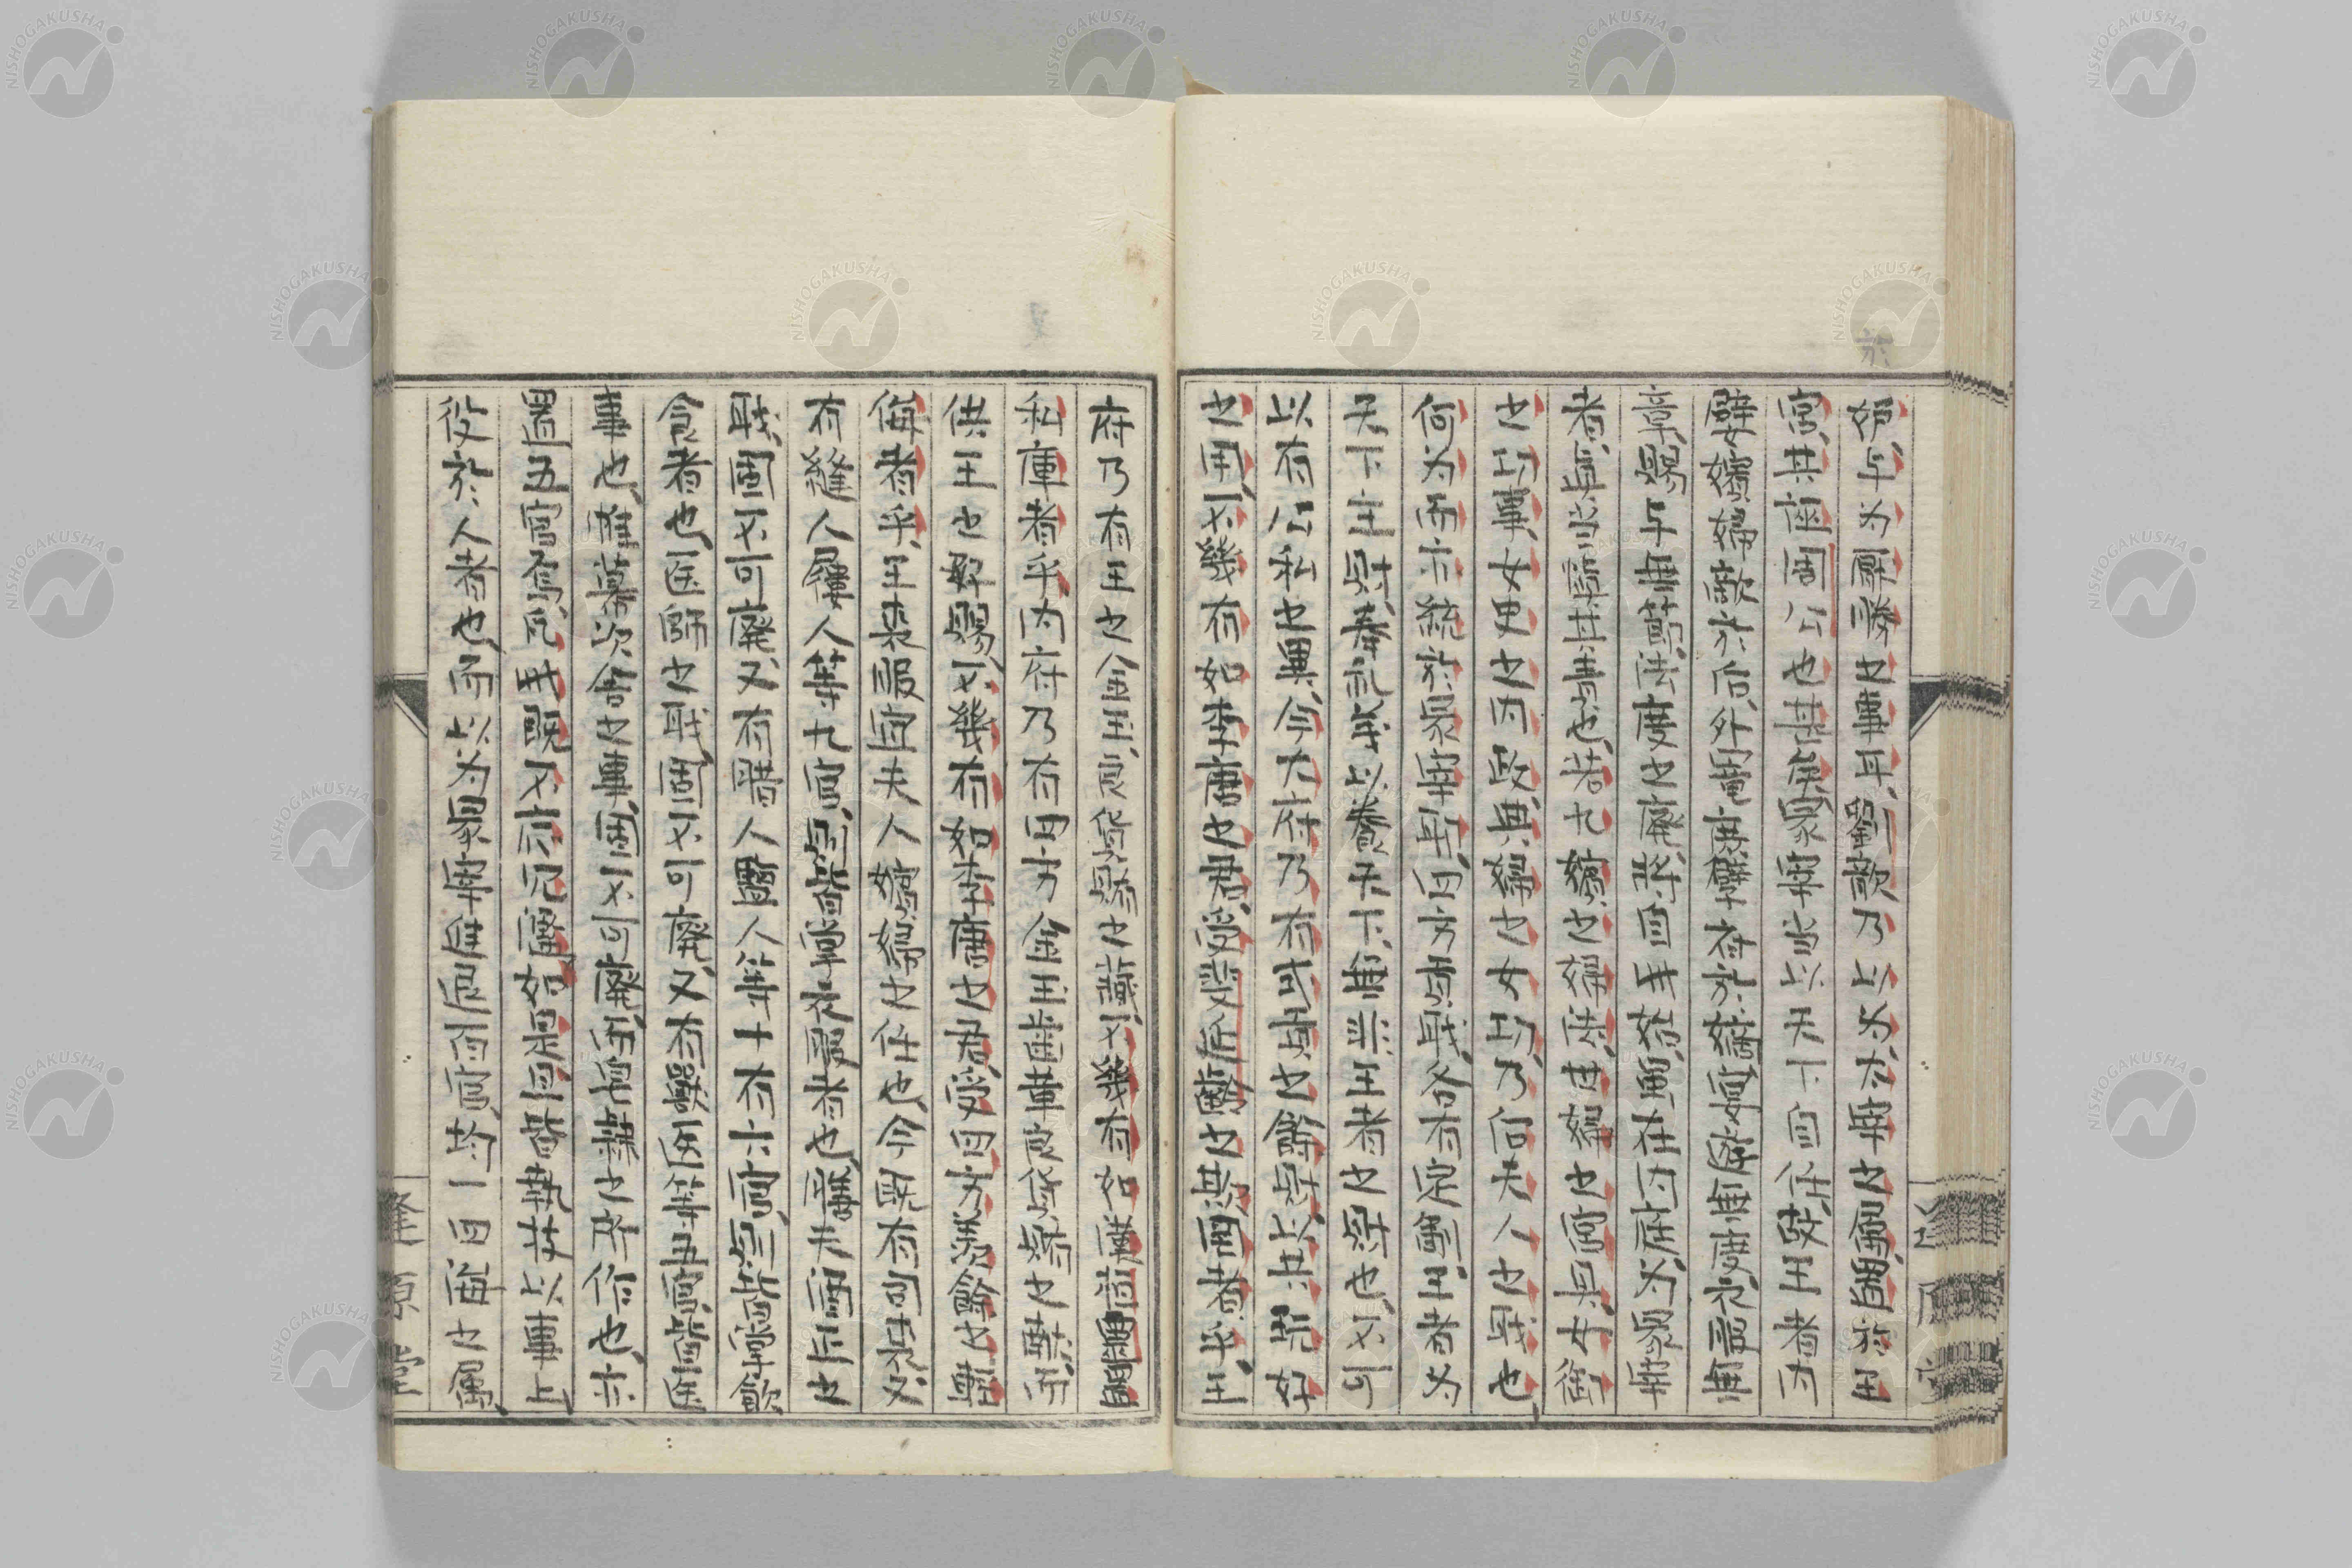 於
妒、与为廝養之事耳、劉歆乃以为大宰之屬、置於王
宮、其誣周公也甚矣、冢宰当以天下自任、故王者内
嬖嬪婦敵於后、外寵庶孽齊於嫡、宴遊無度、衣服無
章、賜与無節、法度之廃、将自此始、雖在内庭、为冢宰
者、真当禁其一也、若九嬪之婦法、世婦之宮具、女御
之功事、女史之内政、典婦之女功、乃后夫人之職也
何为而亦統於冢宰耶、曰方家職、各有定制、王者为
天下主財、奉礼義以養天下、無非王者之財也、不可
以有公私之異、今大府乃有式貢之餘財、以共玩好
之用、不幾有如李唐之君、受裴延齡之欺罔者乎、玉
府乃有王之金玉、良貨賄之藏、不幾有如漢
私庫者乎、内府乃有四方金玉歯革良貨賄之献、而
供王之好賜、不幾有如李唐之君、受四方羨餘之軽
侮者乎、王裘服宜夫人嬪婦之任也、今既有司裘、又
有縫人屨人等九官、則皆掌衣服者也、膳夫酒正之
職、固不可廃、又有腊人醢人等十有六官、則皆掌飲
食者也、医師之職、固不可廃、又有獣医等五官、皆医
事也、帷幕次舎之事、固不可廃、而皂隷之所作也、亦
置五官焉、凡此既不応冗濫、如是且皆執技以事上
役於人者也、而以为冢宰進退百官、均一四海之屬